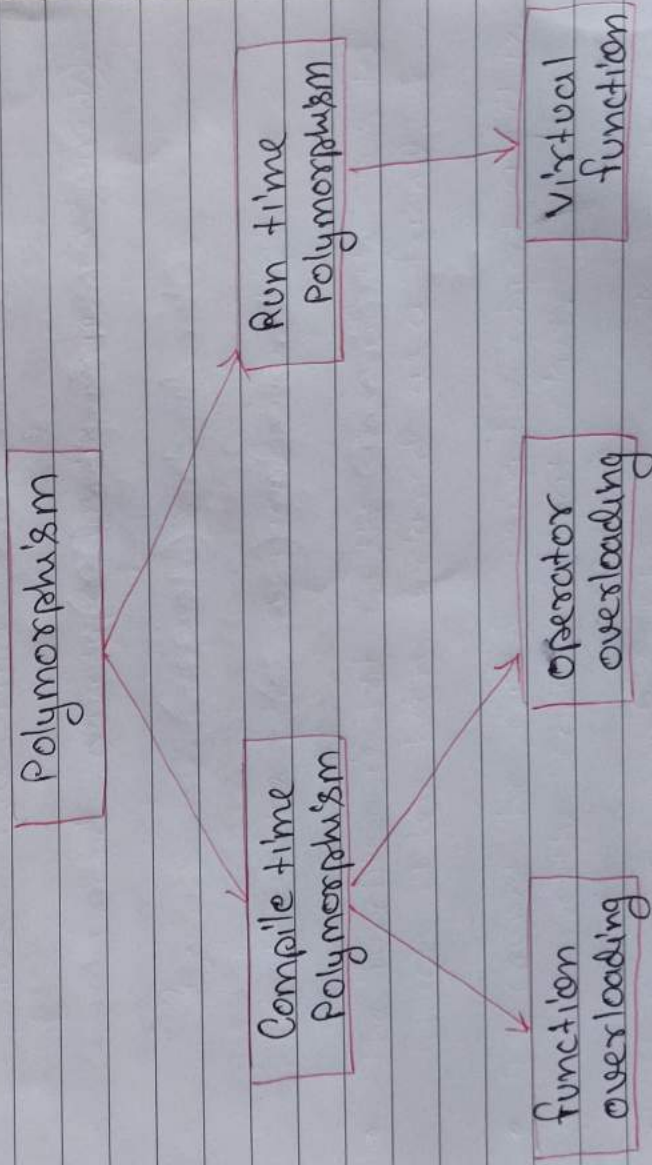 Polymorphism
Compile time
Polymorphism
Run time
Polymorphism
function
overloading
operator
overloading
Virtual
function